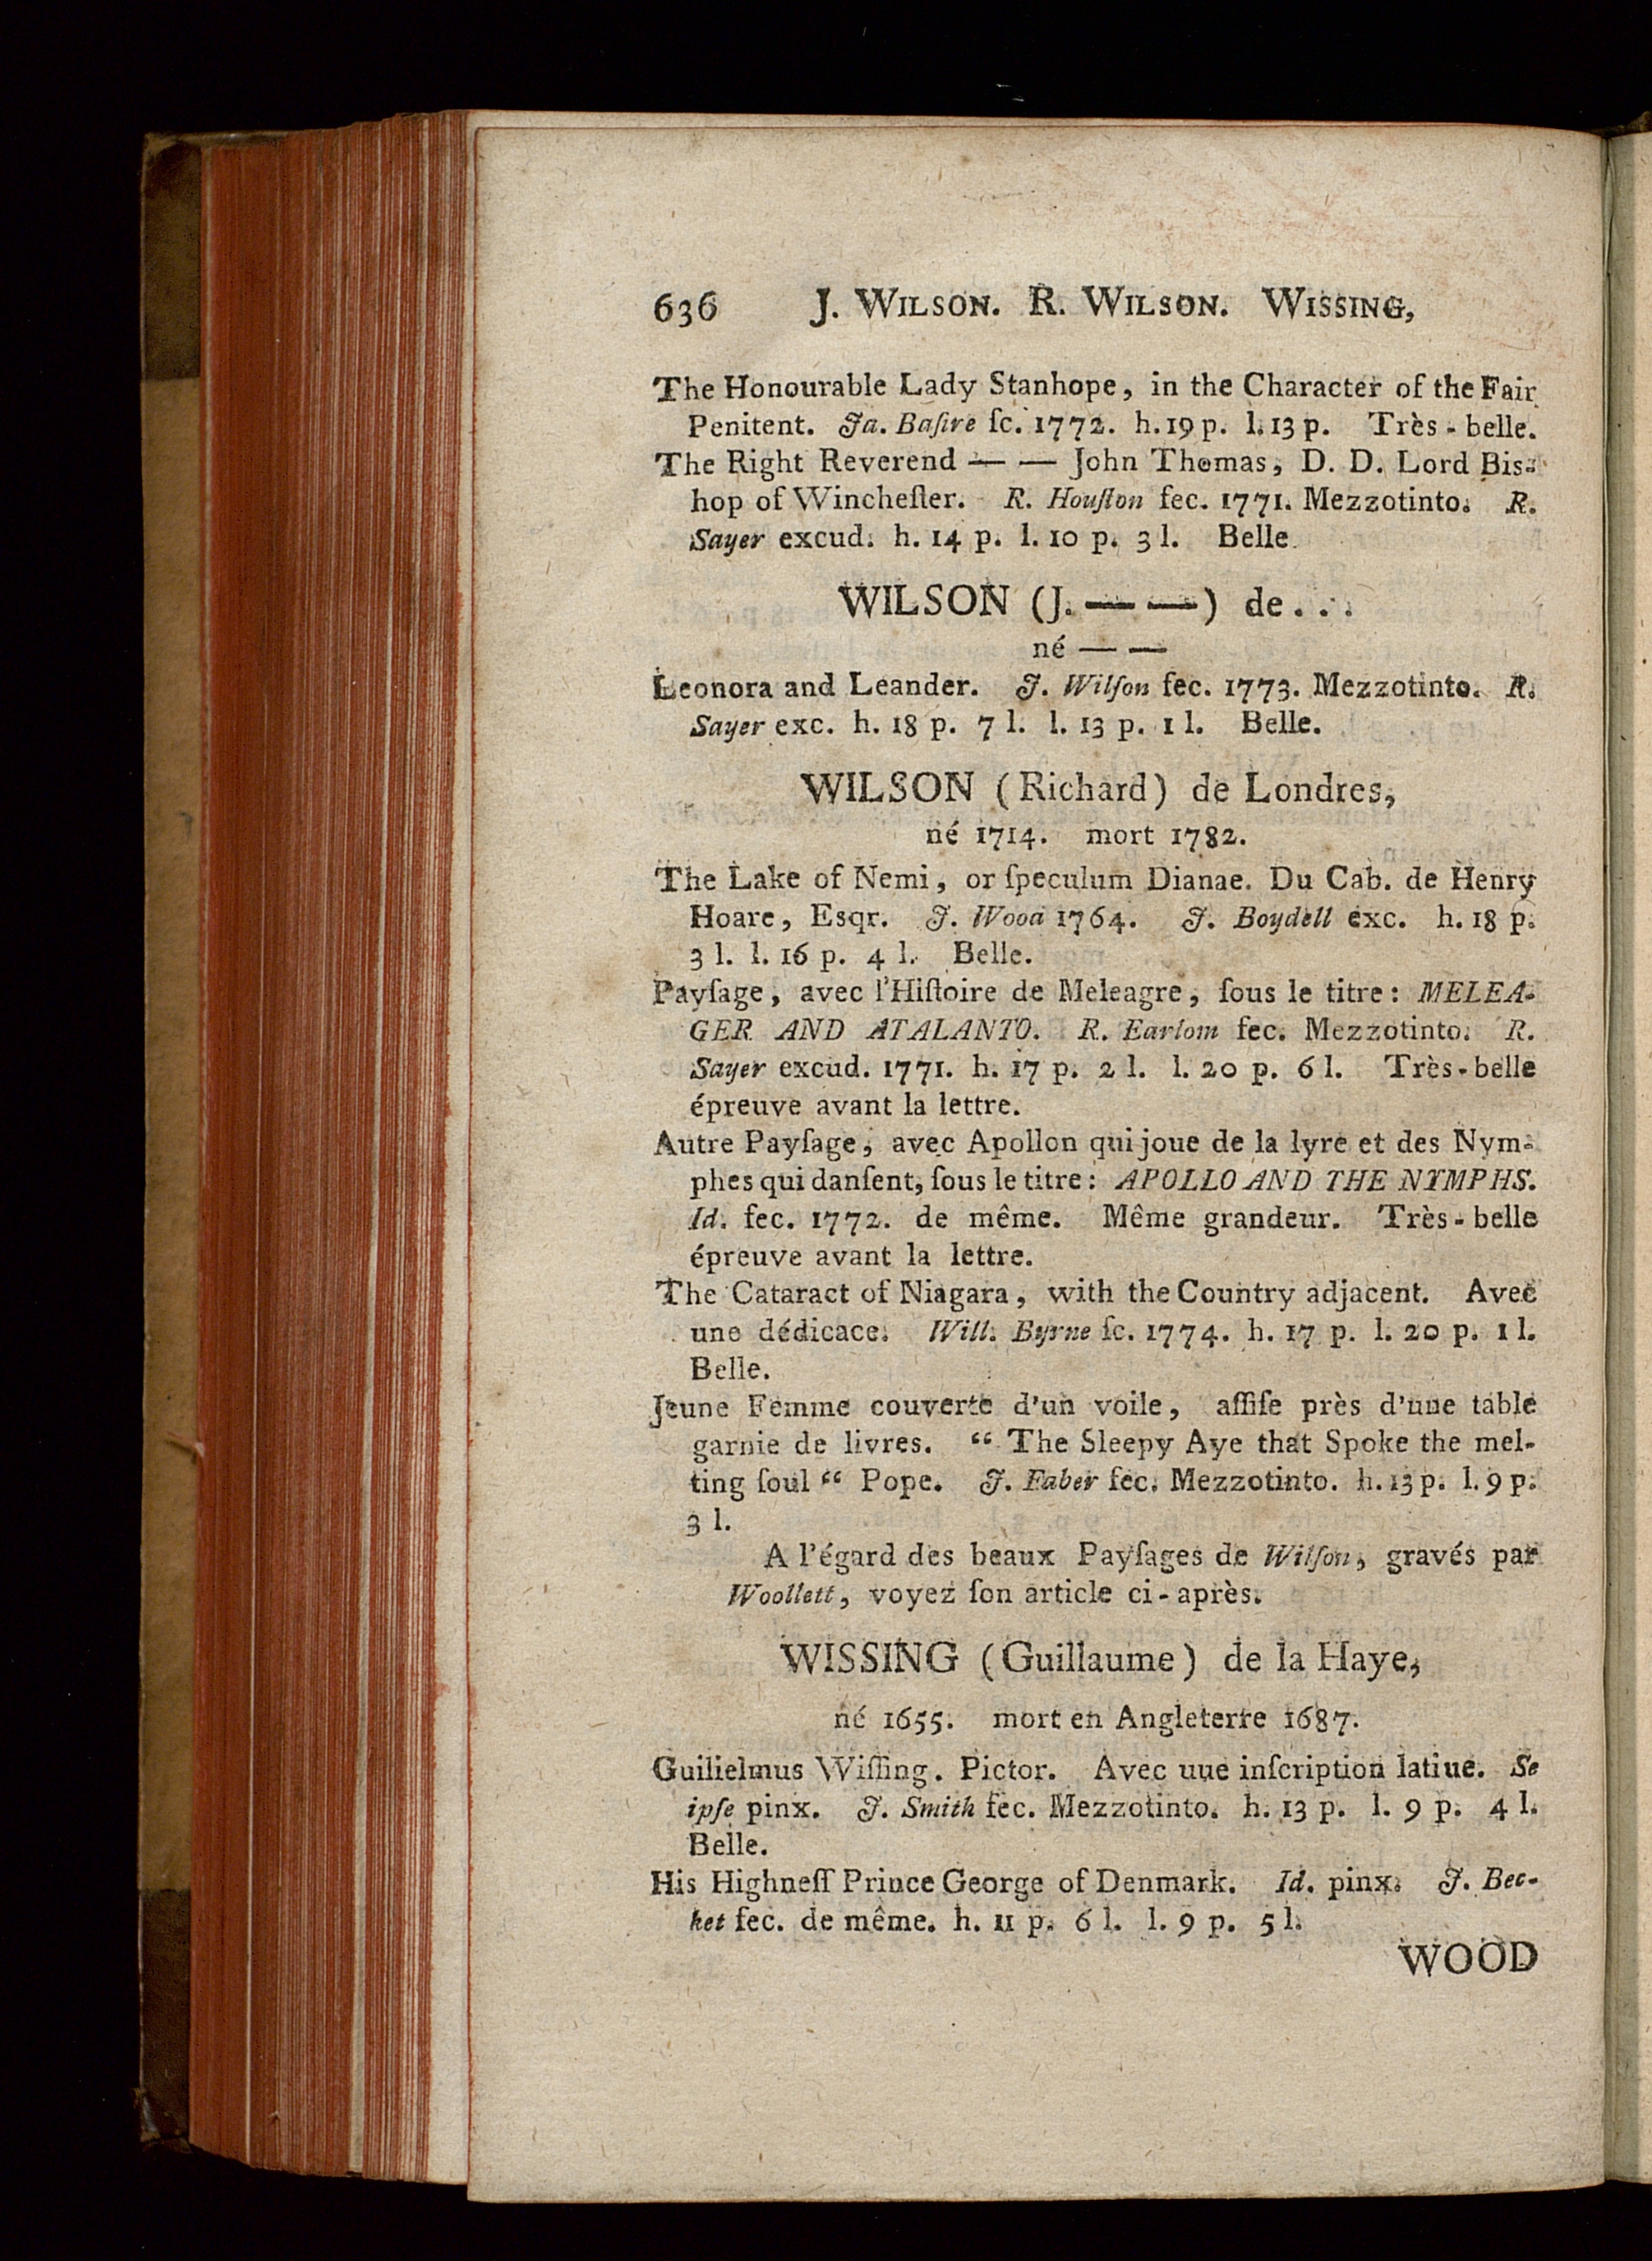 636 J. WILSON. R. WILSON. WISSING,
The Honourable Lady Stanhope, in the Character of the Fair
Penitent. Ja. Baſire ſc. 1772. h. 19 p. l. 13 p. Très-belle.
The Right Reverend — — John Thomas, D. D. Lord Bis-
hop of Wincheſter. R. Houſton fec. 1771. Mezzotinto. R.
Sayer excud. h. 14 p. l. 10 p. 3 l. Belle.
WILSON (J. — —) de...
né — —
Leonora and Leander. J. Wilſon fec. 1773. Mezzotinto. R.
Sayer exc. h. 18 p. 7 l. l. 13 p. 1 l. Belle.
WILSON (Richard) de Londres,
né 1714. mort 1782.
The Lake of Nemi, or ſpeculum Dianae. Du Cab. de Henry
Hoare, Esqr. J. Wood 1764. J. Boydell exc. h. 18 p.
3 l. l. 16 p. 4 l. Belle.
Payſage, avec l'Hiſtoire de Meleagre, ſous le titre: MELEA-
GER AND ATALANTO. R. Earlom fec. Mezzotinto. R.
Sayer excud. 1771. h. 17 p. 2 l. l. 20 p. 6 l. Très-belle
épreuve avant la lettre.
Autre Payſage, avec Apollon qui joue de la lyre et des Nym-
phes qui danſent, ſous le titre: APOLLO AND THE NYMPHS.
Id. fec. 1772. de même. Même grandeur. Très-belle
épreuve avant la lettre.
The Cataract of Niagara, with the Country adjacent. Avec
une dédicace. Will. Byrne ſc. 1774. h. 17 p. l. 20 p. 1 l.
Belle.
Jeune Femme couverte d'un voile, aſſiſe près d'une table
garnie de livres. “ The Sleepy Aye that Spoke the mel-
ting ſoul “ Pope. J. Faber fec. Mezzotinto. h. 13 p. l. 9 p.
3 l.
A l'égard des beaux Payſages de Wilſon, gravés par
Woollett, voyez ſon article ci-après.
WISSING (Guillaume) de la Haye,
né 1655. mort en Angleterre 1687.
Guilielmus Wiſſing. Pictor. Avec uue inſcription latiue. Se
ipſe pinx. J. Smith fec. Mezzotinto. h. 13 p. l. 9 p. 4 l.
Belle.
His Highneſſ Prince George of Denmark. Id. pinx. J. Bec-
ket fec. de même. h. 11 p. 6 l. l. 9 p. 5 l.
WOOD